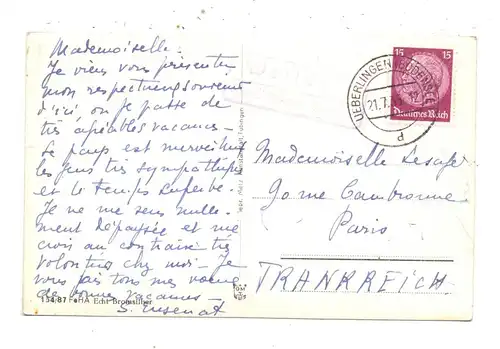 Mademoiselle.
Je viens vous présenter
mon respectueux souvenir
d'ici où je passe de
très agréables vacances -
Le pays est merveilleux
les gens très sympathiques
et le temps superbe.
Je ne me sens nulle-
ment dépaysée et me
crois au contraire très
volontiers chez moi - Je
vous fais tous mes vœux
de bonnes vacances -
S.
134/87 Echt Bromsilber
UEBERLINGEN (BODENSEE)
21.7.
d
15 15
Deutsches Reich
Mademoiselle Lesage
90 rue Cambronne
Paris
FRANKREICH